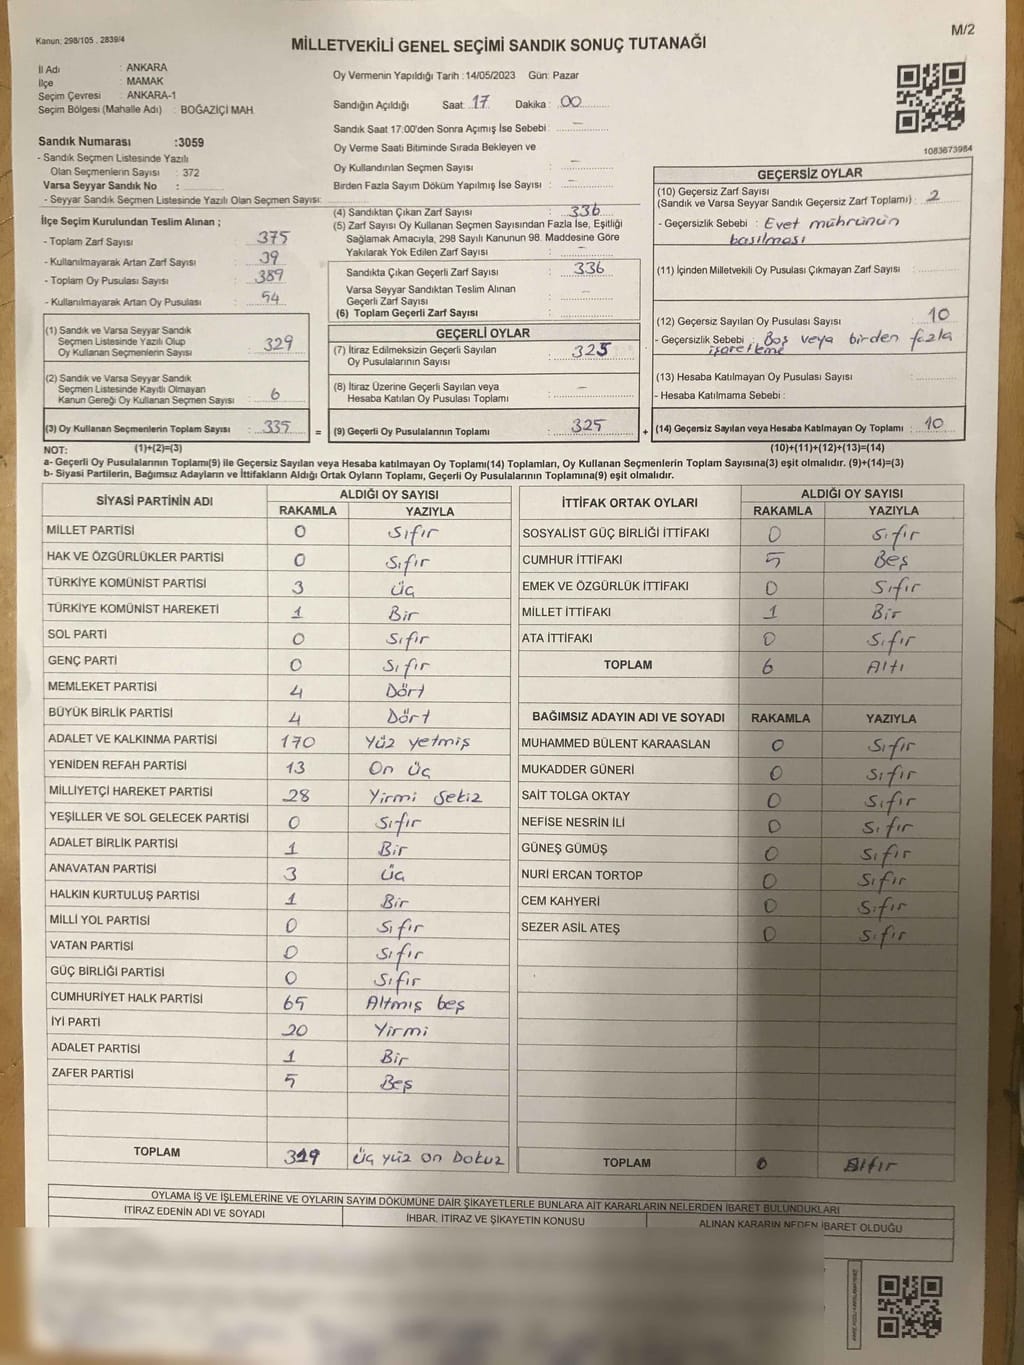 M/2
Kanun: 298/105 , 2839/4
MİLLETVEKİLİ GENEL SEÇİMİ SANDIK SONUÇ TUTANAĞI
İl Adı : ANKARA
İlçe : MAMAK
Seçim Çevresi : ANKARA-1
Seçim Bölgesi (Mahalle Adı) : BOĞAZİÇİ MAH.
Sandık Numarası :3059
- Sandık Seçmen Listesinde Yazılı
Olan Seçmenlerin Sayısı : 372
Varsa Seyyar Sandık No :
- Seyyar Sandık Seçmen Listesinde Yazılı Olan Seçmen Sayısı:
Oy Vermenin Yapıldığı Tarih :14/05/2023 Gün: Pazar
Sandığın Açıldığı Saat 17 Dakika : 00
Sandık Saat 17:00'den Sonra Açımış İse Sebebi : —
Oy Verme Saati Bitiminde Sırada Bekleyen ve
Oy Kullandırılan Seçmen Sayısı : —
Birden Fazla Sayım Döküm Yapılmış İse Sayısı : —
1083673984
İlçe Seçim Kurulundan Teslim Alınan ;
- Toplam Zarf Sayısı : 375
- Kullanılmayarak Artan Zarf Sayısı : 39
- Toplam Oy Pusulası Sayısı : 389
- Kullanılmayarak Artan Oy Pusulası : 54
(1) Sandık ve Varsa Seyyar Sandık
Seçmen Listesinde Yazılı Olup
Oy Kullanan Seçmenlerin Sayısı : 329
(2) Sandık ve Varsa Seyyar Sandık
Seçmen Listesinde Kayıtlı Olmayan
Kanun Gereği Oy Kullanan Seçmen Sayısı : 6
(3) Oy Kullanan Seçmenlerin Toplam Sayısı : 335 =
(4) Sandıktan Çıkan Zarf Sayısı : 336
(5) Zarf Sayısı Oy Kullanan Seçmen Sayısından Fazla İse, Eşitliği
Sağlamak Amacıyla, 298 Sayılı Kanunun 98. Maddesine Göre
Yakılarak Yok Edilen Zarf Sayısı : —
Sandıkta Çıkan Geçerli Zarf Sayısı : 336
Varsa Seyyar Sandıktan Teslim Alınan
Geçerli Zarf Sayısı : —
(6) Toplam Geçerli Zarf Sayısı :
GEÇERLİ OYLAR
(7) İtiraz Edilmeksizin Geçerli Sayılan
Oy Pusulalarının Sayısı : 325
(8) İtiraz Üzerine Geçerli Sayılan veya
Hesaba Katılan Oy Pusulası Toplamı : —
(9) Geçerli Oy Pusulalarının Toplamı : 325 +
GEÇERSİZ OYLAR
(10) Geçersiz Zarf Sayısı
(Sandık ve Varsa Seyyar Sandık Geçersiz Zarf Toplamı) : 2
- Geçersizlik Sebebi : Evet mührünün
basılması
(11) İçinden Milletvekili Oy Pusulası Çıkmayan Zarf Sayısı :
(12) Geçersiz Sayılan Oy Pusulası Sayısı : 10
- Geçersizlik Sebebi : Boş veya birden fazla
işaretleme
(13) Hesaba Katılmayan Oy Pusulası Sayısı :
- Hesaba Katılmama Sebebi :
(14) Geçersiz Sayılan veya Hesaba Katılmayan Oy Toplamı : 10
NOT: (1)+(2)=(3) (10)+(11)+(12)+(13)=(14)
a- Geçerli Oy Pusulalarının Toplamı(9) ile Geçersiz Sayılan veya Hesaba katılmayan Oy Toplamı(14) Toplamları, Oy Kullanan Seçmenlerin Toplam Sayısına(3) eşit olmalıdır. (9)+(14)=(3)
b- Siyasi Partilerin, Bağımsız Adayların ve İttifakların Aldığı Ortak Oyların Toplamı, Geçerli Oy Pusulalarının Toplamına(9) eşit olmalıdır.
SİYASİ PARTİNİN ADI ALDIĞI OY SAYISI
RAKAMLA YAZIYLA
MİLLET PARTİSİ 0 Sıfır
HAK VE ÖZGÜRLÜKLER PARTİSİ 0 Sıfır
TÜRKİYE KOMÜNİST PARTİSİ 3 Üç
TÜRKİYE KOMÜNİST HAREKETİ 1 Bir
SOL PARTİ 0 Sıfır
GENÇ PARTİ 0 Sıfır
MEMLEKET PARTİSİ 4 Dört
BÜYÜK BİRLİK PARTİSİ 4 Dört
ADALET VE KALKINMA PARTİSİ 170 Yüz yetmiş
YENİDEN REFAH PARTİSİ 13 On üç
MİLLİYETÇİ HAREKET PARTİSİ 28 Yirmi sekiz
YEŞİLLER VE SOL GELECEK PARTİSİ 0 Sıfır
ADALET BİRLİK PARTİSİ 1 Bir
ANAVATAN PARTİSİ 3 Üç
HALKIN KURTULUŞ PARTİSİ 1 Bir
MİLLİ YOL PARTİSİ 0 Sıfır
VATAN PARTİSİ 0 Sıfır
GÜÇ BİRLİĞİ PARTİSİ 0 Sıfır
CUMHURİYET HALK PARTİSİ 65 Altmış beş
İYİ PARTİ 20 Yirmi
ADALET PARTİSİ 1 Bir
ZAFER PARTİSİ 5 Beş
TOPLAM 319 Üç yüz on Dokuz
İTTİFAK ORTAK OYLARI ALDIĞI OY SAYISI
RAKAMLA YAZIYLA
SOSYALİST GÜÇ BİRLİĞİ İTTİFAKI 0 Sıfır
CUMHUR İTTİFAKI 5 Beş
EMEK VE ÖZGÜRLÜK İTTİFAKI 0 Sıfır
MİLLET İTTİFAKI 1 Bir
ATA İTTİFAKI 0 Sıfır
TOPLAM 6 Altı
BAĞIMSIZ ADAYIN ADI VE SOYADI RAKAMLA YAZIYLA
MUHAMMED BÜLENT KARAASLAN 0 Sıfır
MUKADDER GÜNERİ 0 Sıfır
SAİT TOLGA OKTAY 0 Sıfır
NEFİSE NESRİN İLİ 0 Sıfır
GÜNEŞ GÜMÜŞ 0 Sıfır
NURİ ERCAN TORTOP 0 Sıfır
CEM KAHYERİ 0 Sıfır
SEZER ASİL ATEŞ 0 Sıfır
TOPLAM 0 Sıfır
OYLAMA İŞ VE İŞLEMLERİNE VE OYLARIN SAYIM DÖKÜMÜNE DAİR ŞİKAYETLERLE BUNLARA AİT KARARLARIN NELERDEN İBARET BULUNDUKLARI
İTİRAZ EDENİN ADI VE SOYADI İHBAR, İTİRAZ VE ŞİKAYETİN KONUSU ALINAN KARARIN NEDEN İBARET OLDUĞU